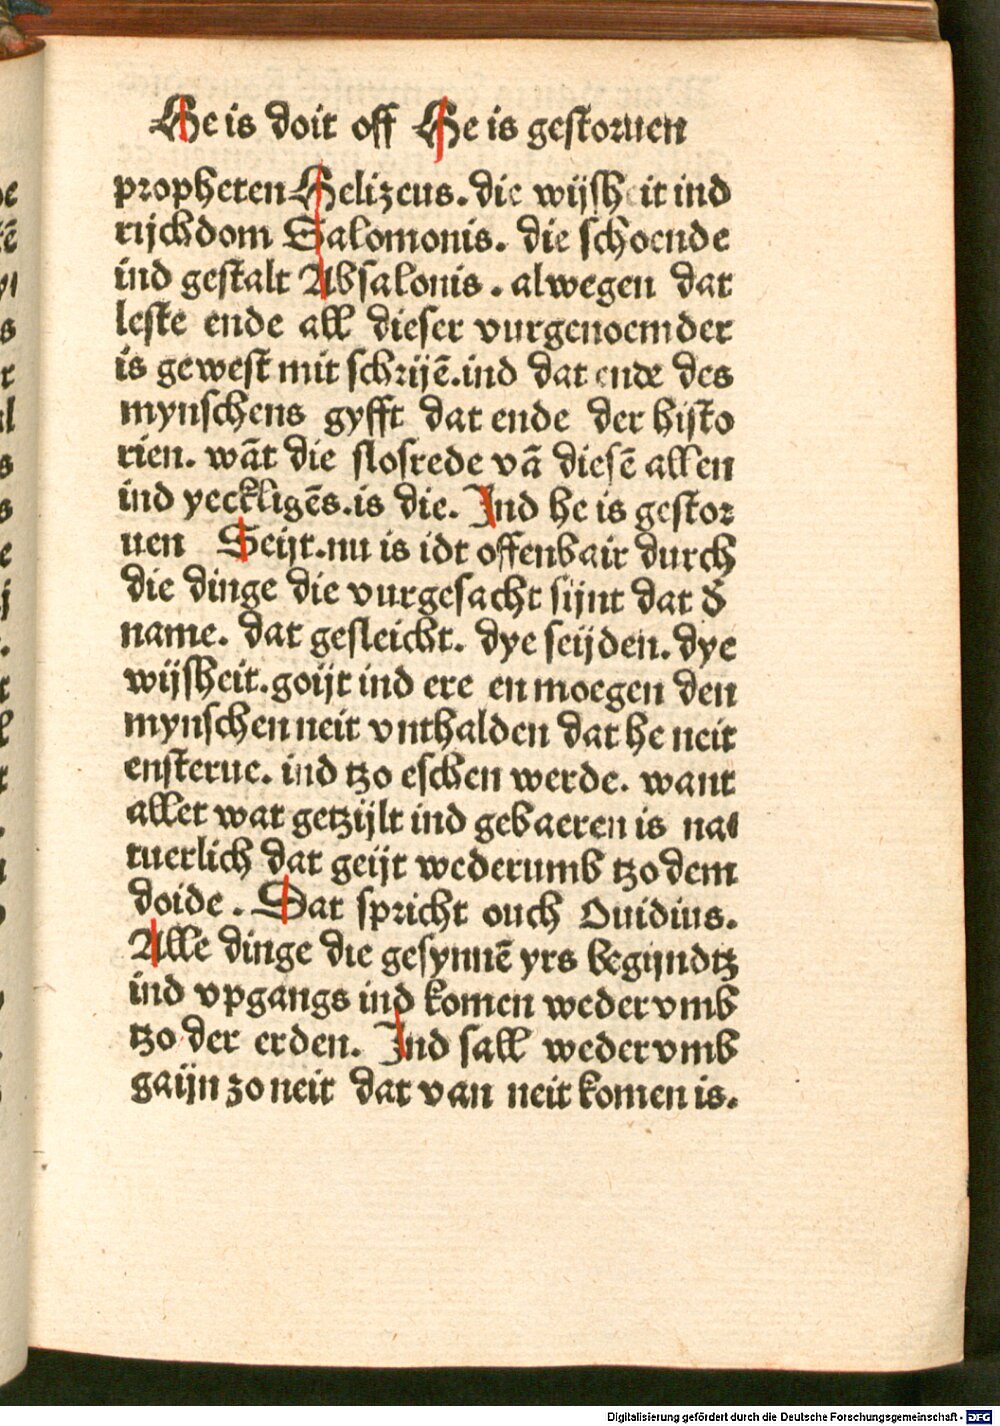 He is doit off He is gestoruen
propheten Helizeus. die wijsheit ind
rijchdom Salomonis. die schoende
ind gestalt Absalonis. alwegen dat
leste ende all dieser vurgenoemder
is gewest mit schrijē.ind dat ende des
mynschens gyfft dat ende der histo
rien. wāt die slosrede vā diesē allen
ind yeckligēs.is die. Ind he is gestor
uen Seijt.nu is idt offenbair durch
die dinge die vurgesacht sijnt dat d̄
name. dat gesleicht. dye seijden. dye
wijsheit.goijt ind ere en moegen den
mynschen neit vnthalden dat he neit
ensterue. ind tzo eschen werde. want
allet wat getzijlt ind gebaeren is na⸗
tuerlich dat geijt wederumb tzo dem
doide. Dat spricht ouch Ouidius.
Alle dinge die gesynnē yrs begijndtz
ind vpgangs ind komen weder vmb
tzo der erden. Ind sall weder vmb
gaijn zo neit dat van neit komen is.
Digitalisierung gefördert durch die Deutsche Forschungsgemeinschaft - DFG